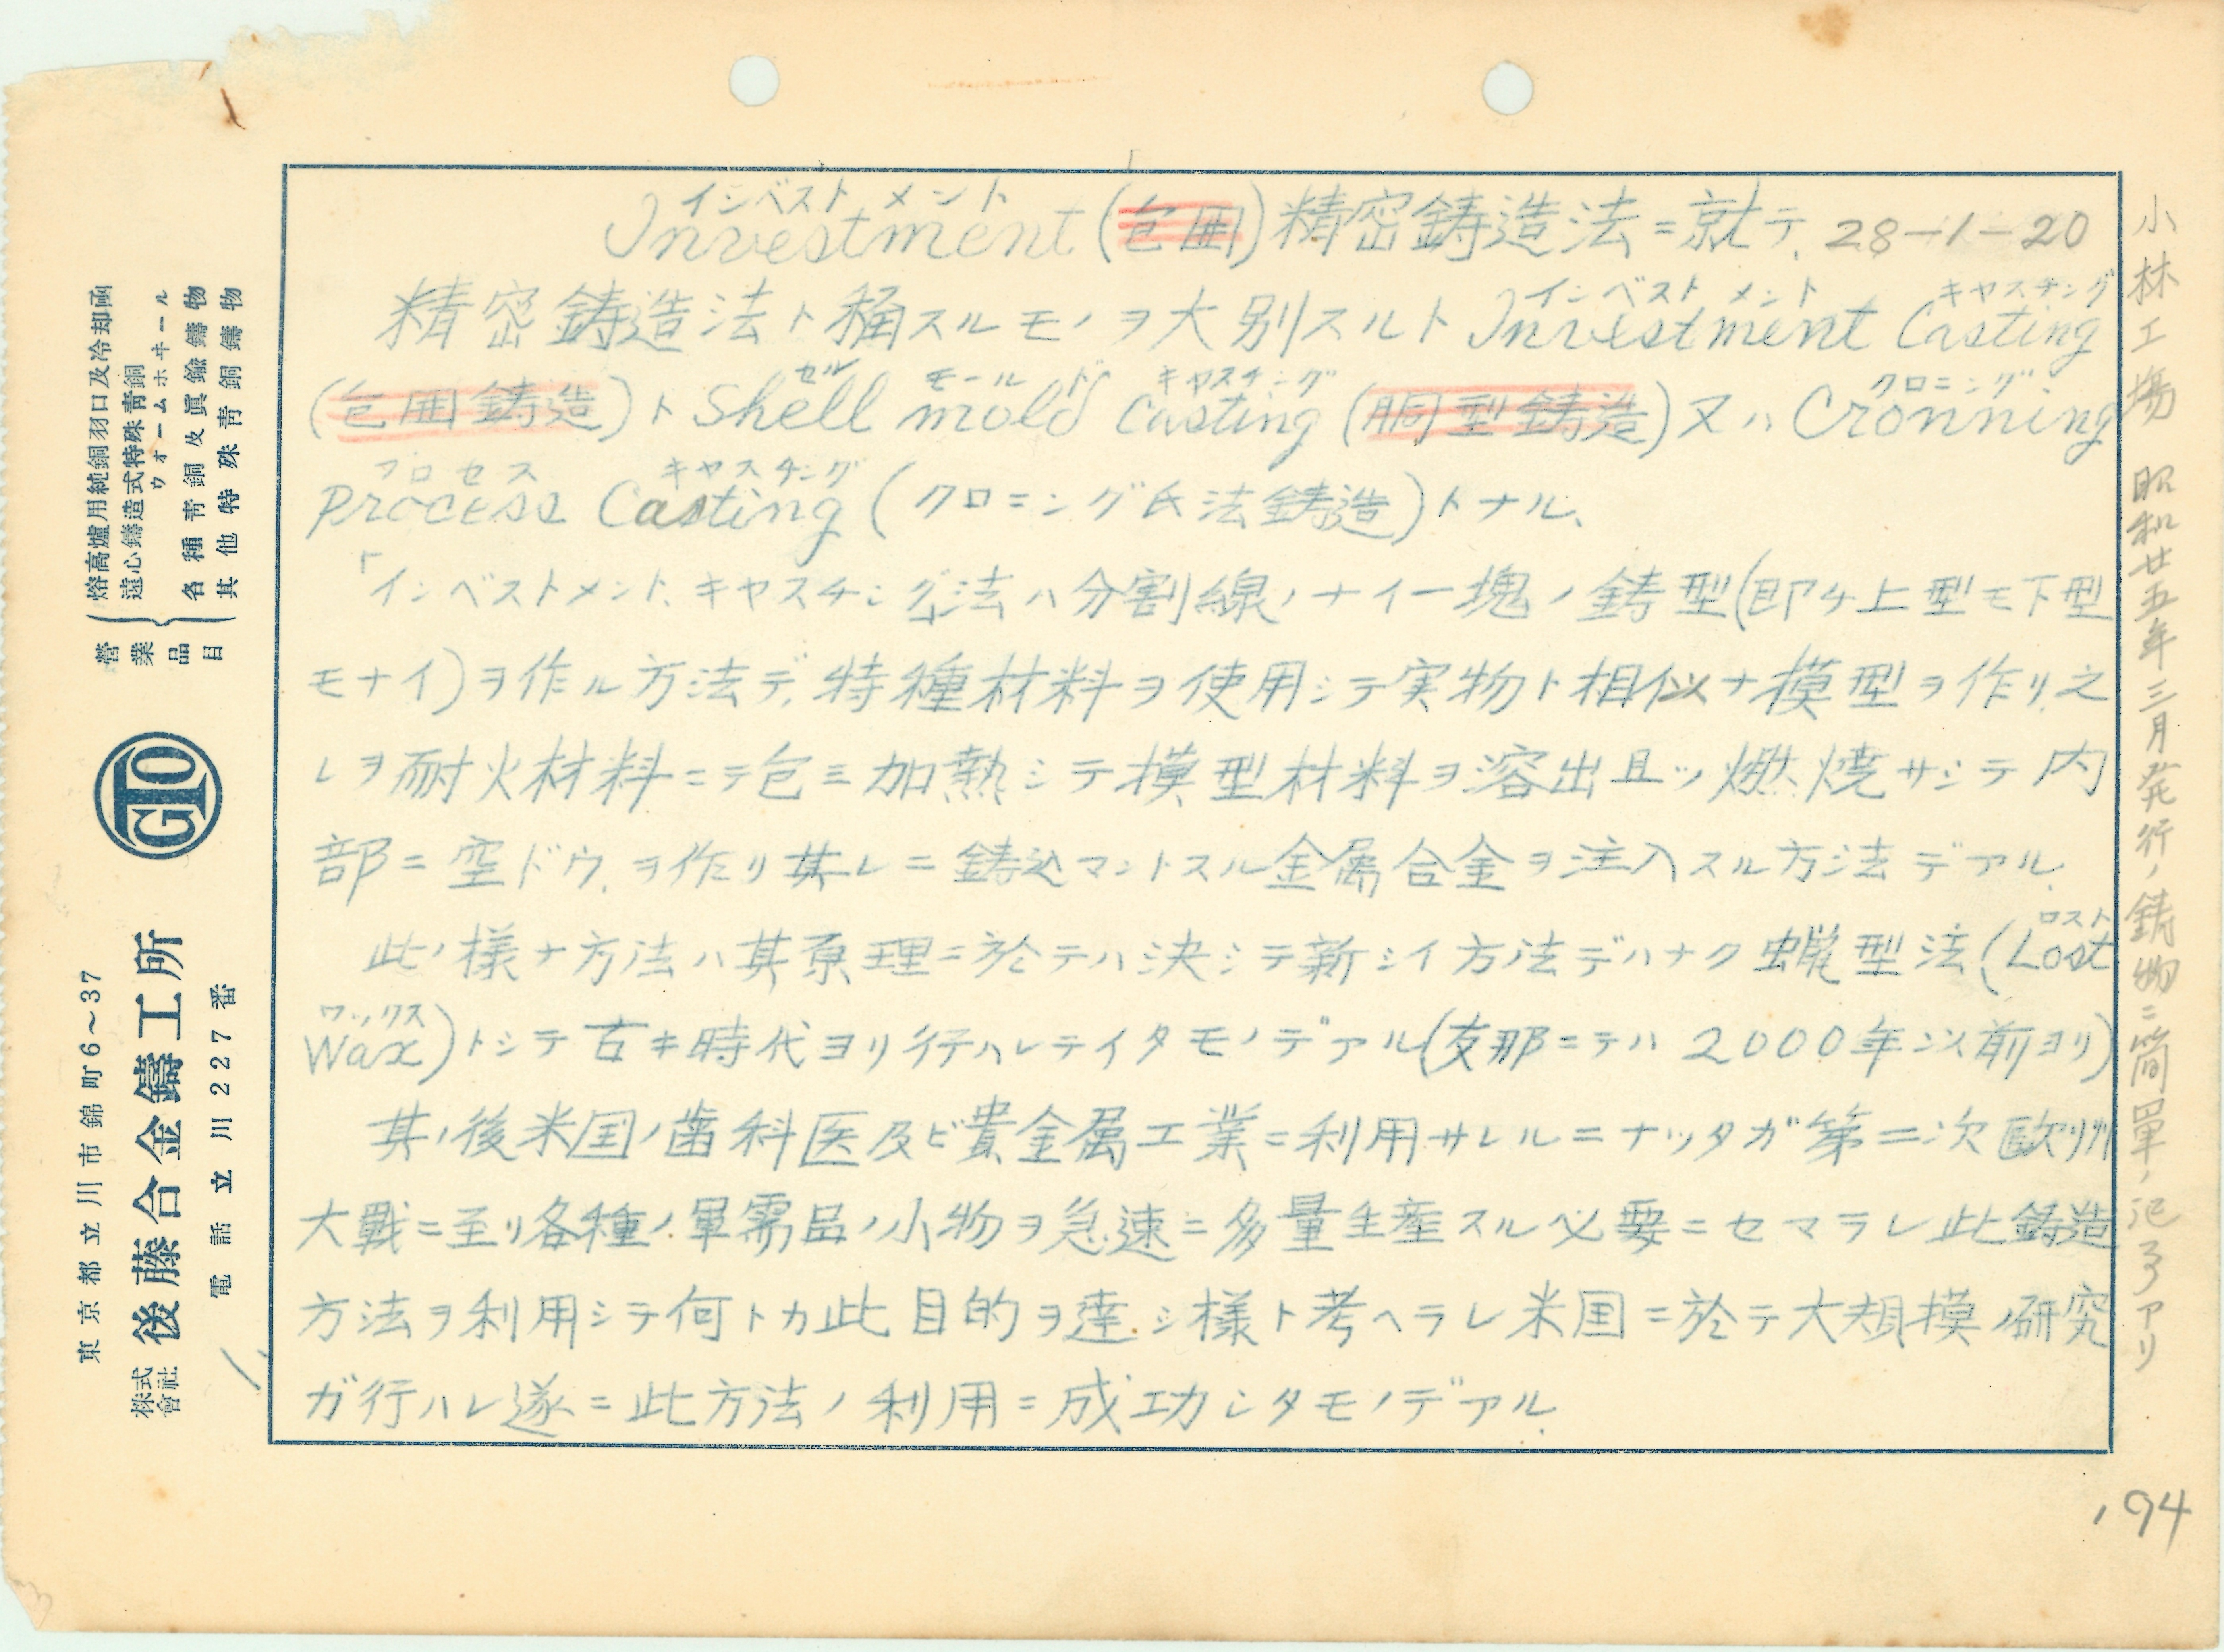 Investment (包囲) 精密鋳造法ニ就テ、28-1-20
インベストメント
精密鋳造法ト稱スルモノヲ大別スルト Investment Casting
インベストメント キャスチング
(包囲鋳造)ト Shell mold Casting (胴型鋳造)又ハ Cronning
セル モールド キャスチング クロニング
Process Casting (クロニング氏法鋳造)トナル、
プロセス キャスチング
「インベストメント、キャスチング」法ハ分割線ノナイ一塊ノ鋳型(即チ上型モ下型
モナイ)ヲ作ル方法デ、特種材料ヲ使用シテ実物ト相似ナ模型ヲ作リ、之
レヲ耐火材料ニテ包ミ加熱シテ模型材料ヲ溶出且ツ燃焼サシテ内
部ニ空ドウ、ヲ作リ其レニ鋳込マントスル金属合金ヲ注入スル方法デアル、
此ノ様ナ方法ハ其原理ニ於テハ決シテ新シイ方法デハナク蝋型法(Lost
ロスト
Wax)トシテ古キ時代ヨリ行ハレテイタモノデアル(支那ニテハ2000年以前ヨリ)
ワックス
其ノ後米国ノ歯科医及ビ貴金属工業ニ利用サレルニナッタガ第二次欧州
大戰ニ至リ各種ノ軍需品ノ小物ヲ急速ニ多量生産スル必要ニセマラレ此鋳造
方法ヲ利用シテ何トカ此目的ヲ達シ様ト考ヘラレ米国ニ於テ大規模ノ研究
ガ行ハレ遂ニ此方法ノ利用ニ成功シタモノデアル、
小林工場 昭和廿五年三月発行ノ鋳物ニ簡單ノ記アリ
194
営業品目
熔高爐用純銅羽口及冷却函
遠心鑄造式特殊靑銅ウォームホヰール
各種靑銅及眞鍮鑄物
其他特殊靑銅鑄物
GTO
東京都立川市錦町6~37
株式會社 後藤合金鑄工所
電話立川227番